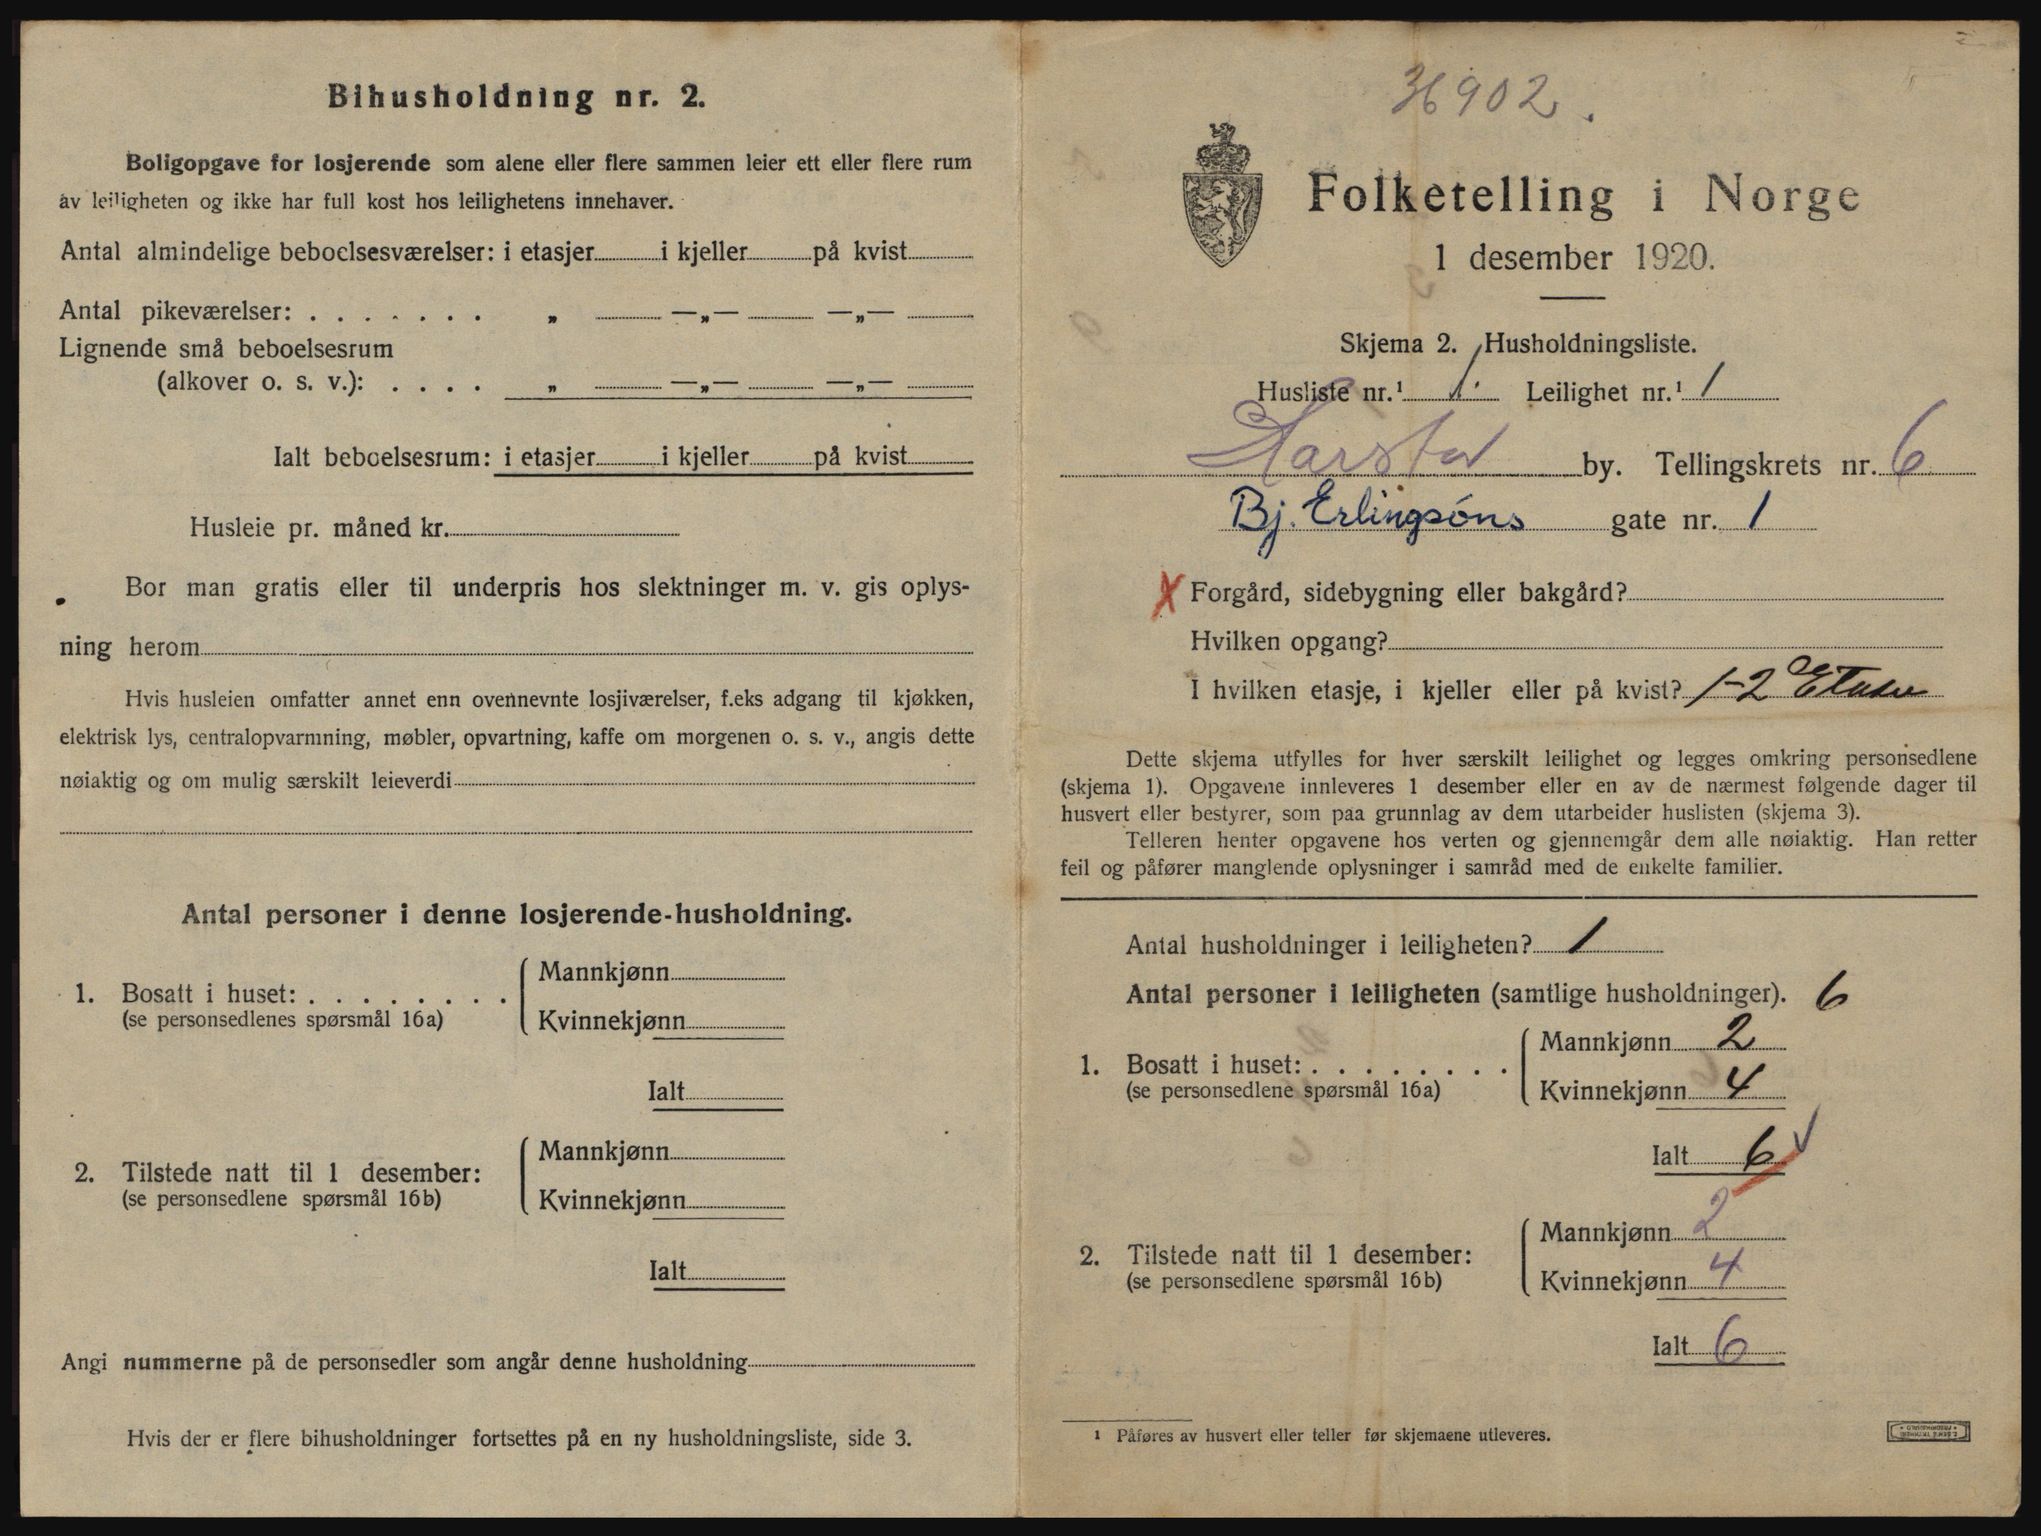 Bihusholdning nr. 2.
Boligopgave for losjerende som alene eller flere sammen leier ett eller flere rum
av leiligheten og ikke har full kost hos leilighetens innehaver.
Antal almindelige beboelsesværelser: i etasjer i kjeller på kvist
Antal pikeværelser: . . . . . . . „ —„— —„—
Lignende små beboelsesrum
(alkover o. s. v.): . . . . „ —„— —„—
Ialt beboelsesrum: i etasjer i kjeller på kvist
Husleie pr. måned kr.
Bor man gratis eller til underpris hos slektninger m. v. gis oplys-
ning herom
Hvis husleien omfatter annet enn ovennevnte losjiværelser, f.eks adgang til kjøkken,
elektrisk lys, centralopvarmning, møbler, opvartning, kaffe om morgenen o. s. v., angis dette
nøiaktig og om mulig særskilt leieverdi
Antal personer i denne losjerende-husholdning.
1. Bosatt i huset: . . . . . . . . Mannkjønn
(se personsedlenes spørsmål 16a) Kvinnekjønn
Ialt
2. Tilstede natt til 1 desember: Mannkjønn
(se personsedlene spørsmål 16b) Kvinnekjønn
Ialt
Angi nummerne på de personsedler som angår denne husholdning
Hvis der er flere bihusholdninger fortsettes på en ny husholdningsliste, side 3.
36902.
Folketelling i Norge
1 desember 1920.
Skjema 2. Husholdningsliste.
Husliste nr.¹ 1 Leilighet nr.¹ 1
Harstad by. Tellingskrets nr. 6
Bj. Erlingsøns gate nr. 1
X Forgård, sidebygning eller bakgård?
Hvilken opgang?
I hvilken etasje, i kjeller eller på kvist? 1-2 Etasje
Dette skjema utfylles for hver særskilt leilighet og legges omkring personsedlene
(skjema 1). Opgavene innleveres 1 desember eller en av de nærmest følgende dager til
husvert eller bestyrer, som paa grunnlag av dem utarbeider huslisten (skjema 3).
Telleren henter opgavene hos verten og gjennemgår dem alle nøiaktig. Han retter
feil og påfører manglende oplysninger i samråd med de enkelte familier.
Antal husholdninger i leiligheten? 1
Antal personer i leiligheten (samtlige husholdninger). 6
1. Bosatt i huset: . . . . . . . . Mannkjønn 2
(se personsedlene spørsmål 16a) Kvinnekjønn 4
Ialt 6
2. Tilstede natt til 1 desember: Mannkjønn 2
(se personsedlene spørsmål 16b) Kvinnekjønn 4
Ialt 6
¹ Påføres av husvert eller teller før skjemaene utleveres.